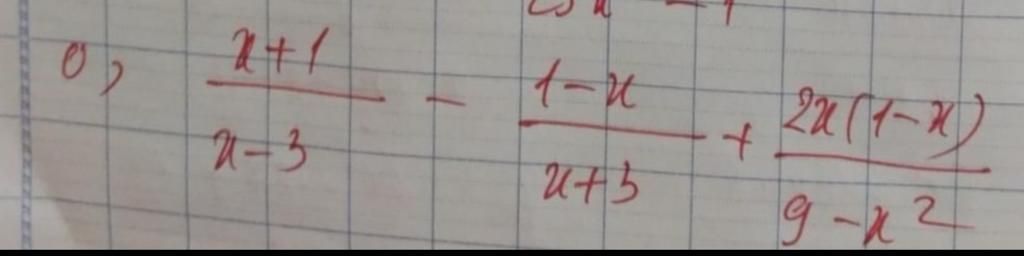 o, \frac{x+1}{x-3} - \frac{1-x}{x+3} + \frac{2x(1-x)}{9-x^2}